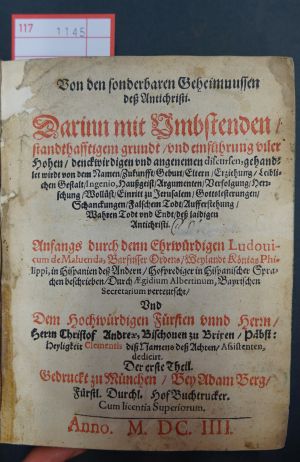 117
1145
Von den sonderbaren Geheimnussen
deß Antichristi.
Darinn mit Umbstenden /
standthafftigem grundt / und einführung viler
Hohen / denckwirdigen und angenemen discursen, gehand-
let wirdt von dem Namen / Zukunfft / Geburt / Eltern / Erziehung / Leibli-
chen Gestalt / Ingenio, Haußgeist / Argumenten / Verfolgung / Herr-
schung / Wollüst / Einritt zu Jerusalem / Gottslesterungen /
Schanckungen / Falschem Todt / Aufferstehung /
Wahren Todt und Ende / deß laidigen
Antichristi.
Anfangs durch denn Ehrwürdigen Ludoui-
cum de Maluenda, Barfuser Ordens / Weylandt Königs Phi-
lippi, in Hispanien deß Andern / Hofprediger in Hispanischer Spra-
chen beschriben / Durch Ægidium Albertinum, Bayrischen
Secretarium verteutscht /
Und
Dem Hochwürdigen Fürsten unnd Herrn /
Herrn Christof Andreæ, Bischouen zu Brixen / Päbst:
Heyligkeit Clementis diß Namens deß Achten / Assistenten,
dediciert.
Der erste Theil.
Gedruckt zu München / Bey Adam Berg /
Fürstl. Durchl. Hof Buchtrucker.
Cum licentia Superiorum.
Anno. M. DC. IIII.